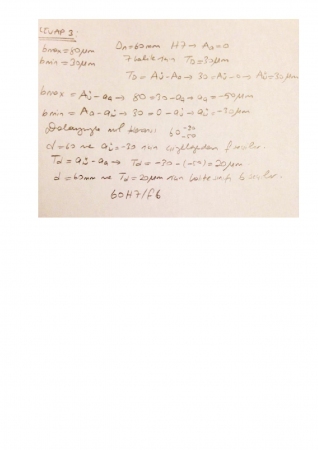 CEVAP 3:
bmax = 80µm Dn=60mm H7 → Aa=0
bmin = 30µm 7 kalite için TD=30µm
TD = Aü-Aa → 30 = Aü-0 → Aü=30µm
bmax = Aü-aa → 80=30-aa → aa=-50µm
bmin = Aa-aü → 30=0-aü → aü=-30µm
Dolayısıyla mil 60 -30 -50
d=60 ve aü=-30 için f
Td = aü-aa → Td = -30-(-50)=20µm
d=60mm ve Td=20µm için kalite 6
60H7/f6